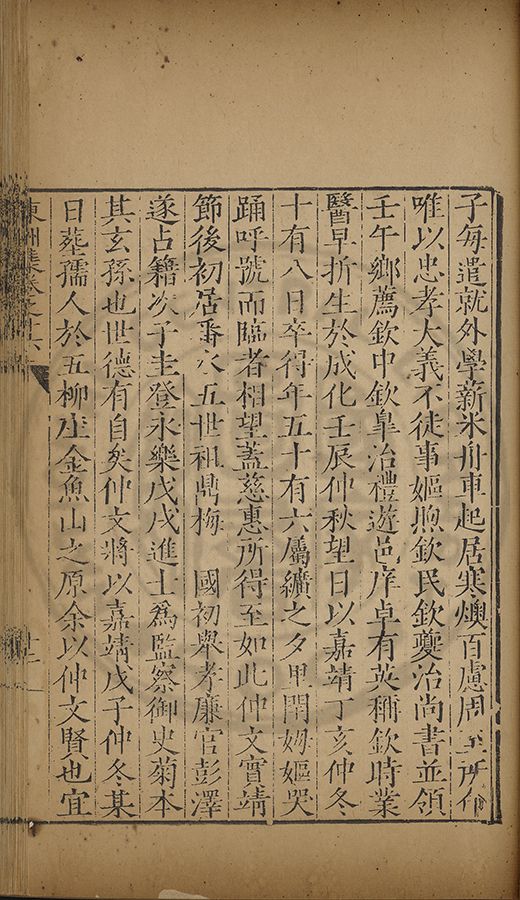 子每遣就外學薪米舟車起居寒燠百慮周至所
唯以忠孝大義不徒事嫗煦欽民欽夔治尚書並領
壬午鄉薦欽中欽臯治禮遊邑庠卓有英稱欽時業
醫早折生於成化壬辰仲秋望日以嘉靖丁亥仲冬
十有八日卒得年五十有六屬纊之夕里閈姆嫗哭
踊呼號而臨者相望蓋慈惠所得至如此仲文實靖
節後初居番永五世祖鼎梅　國初舉孝廉官彭澤
遂占籍次子圭登永樂戊戌進士爲監察御史菊本
其玄孫也世德有自矣仲文將以嘉靖戊子仲冬某
日葬孺人於五柳庄金魚山之原余以仲文賢也宜
東洲集卷之十六